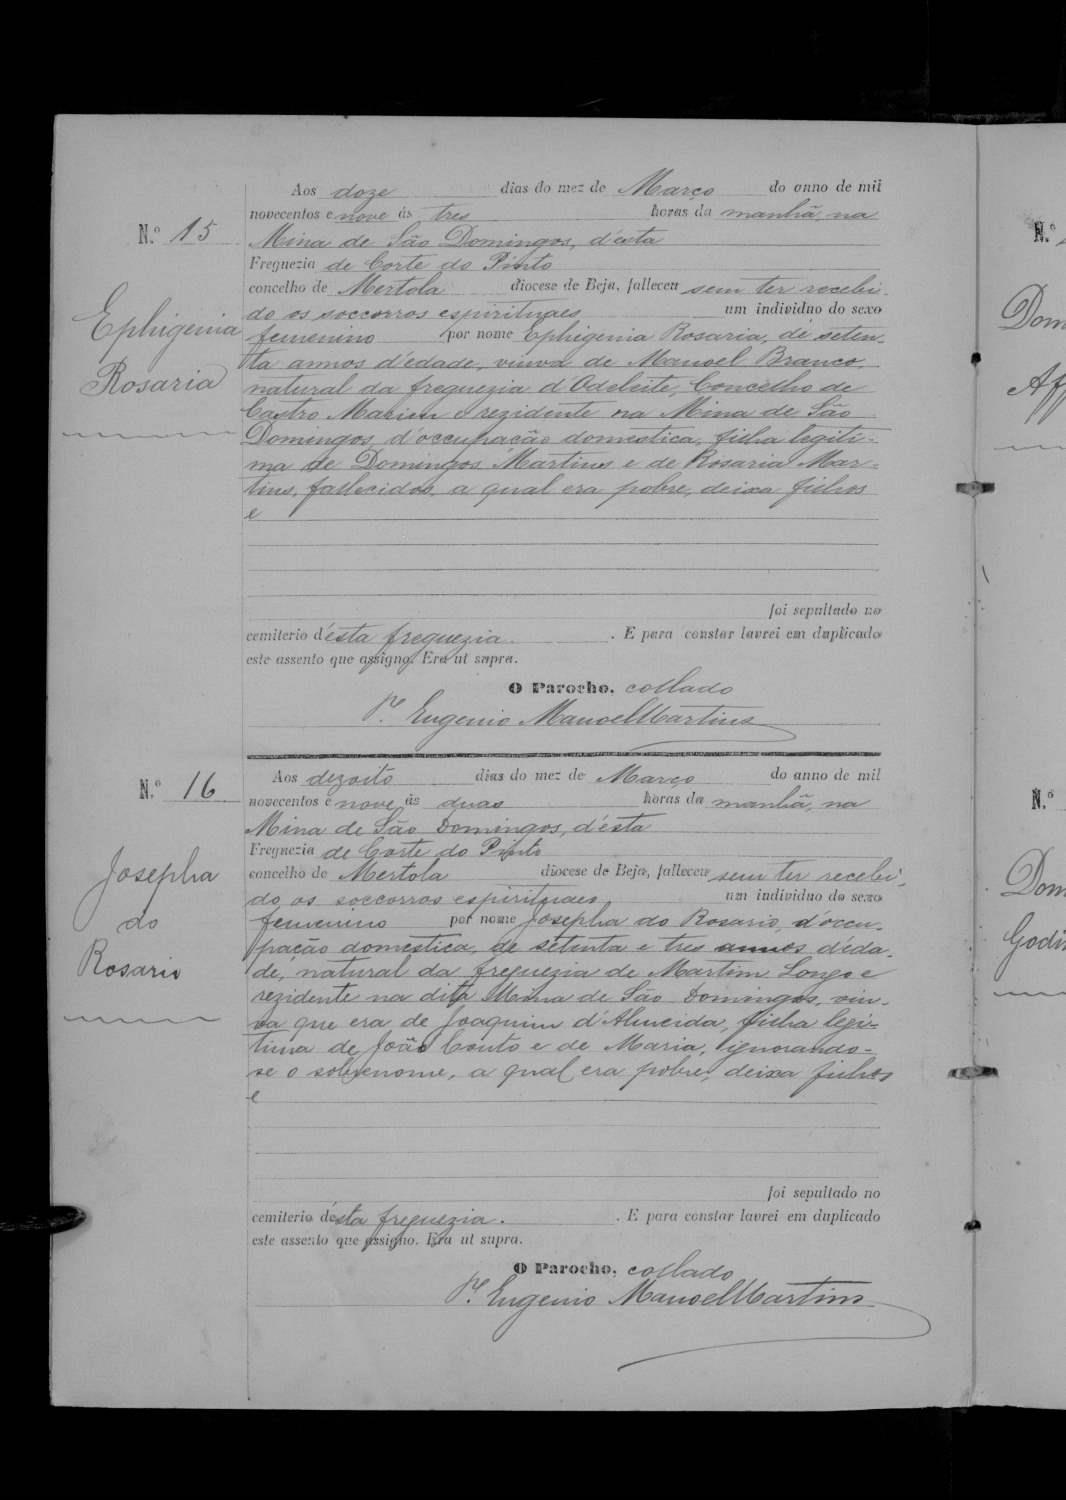 Aos doze dias do mez de Março do anno de mil
novecentos e nove ás tres horas da manhã, na
N.º 15
Mina de São Domingos, d'esta
Freguezia de Corte do Pinto
concelho de Mertola diocese de Beja, falleceu sem ter recebi-
do os soccorros espirituaes um individuo do sexo
Ephigenia
Rosaria
femenino por nome Ephigenia Rosaria, de seten-
ta annos d'edade, viuva de Manoel Branco,
natural da freguezia d'Odeleite, Concelho de
Castro Marim e rezidente na Mina de São
Domingos, d'occupação domestica, filha legiti-
ma de Domingos Martins e de Rosaria Mar-
tins, fallecidos, a qual era pobre, deixa filhos
e
foi sepultado no
cemiterio d'esta freguezia. E para constar lavrei em duplicado
este assento que assigno. Era ut supra.
O Parocho, collado
P.e Eugenio Manoel Martins
Aos dezoito dias do mez de Março do anno de mil
N.º 16
novecentos e nove ás duas horas da manhã, na
Mina de São Domingos, d'esta
Freguezia de Corte do Pinto
concelho de Mertola diocese de Beja, falleceu sem ter recebi-
do os soccorros espirituaes um individuo do sexo
Josepha
do
Rosario
femenino por nome Josepha do Rosario, d'occu-
pação domestica, de setenta e tres annos d'eda-
de, natural da freguezia de Martim Longo e
rezidente na dita Mina de São Domingos, viu-
va que era de Joaquim d'Almeida, filha legi-
tima de João Couto e de Maria, ignorando-
se o sobrenome, a qual era pobre, deixa filhos
e
foi sepultado no
cemiterio d'esta freguezia. E para constar lavrei em duplicado
este assento que assigno. Era ut supra.
O Parocho, collado
P.e Eugenio Manoel Martins
N.º
Dom
Aff
N.º
Dom
Godi